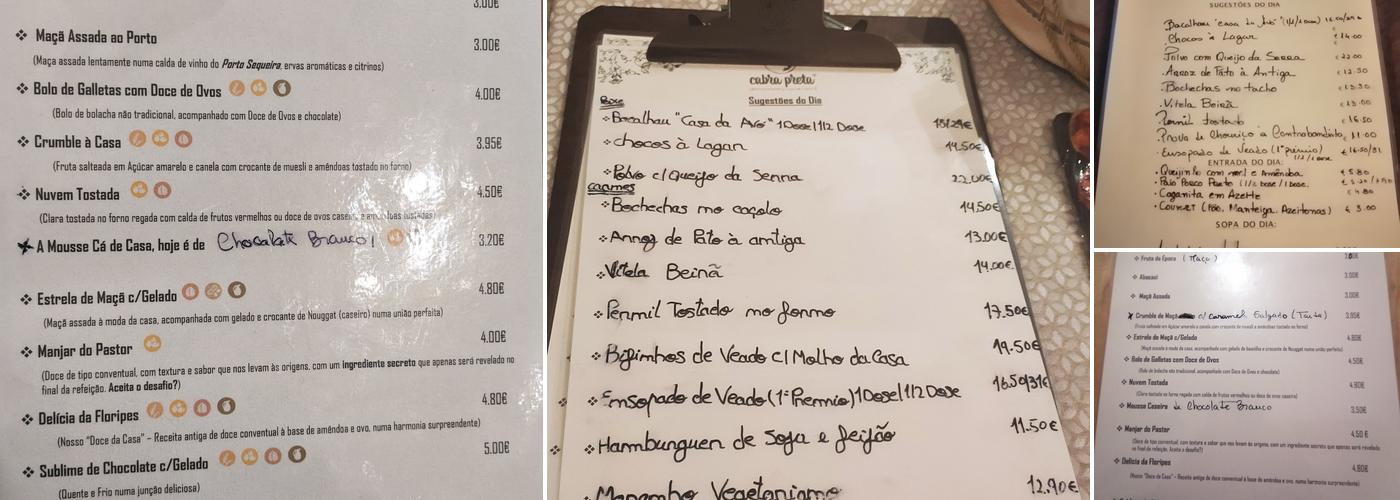 3,00€
❖ Maçã Assada ao Porto 3.00€
(Maça assada lentamente numa calda de vinho do Porto Sequeira, ervas aromáticas e citrinos)
❖ Bolo de Galletas com Doce de Ovos 4.00€
(Bolo de bolacha não tradicional, acompanhado com Doce de Ovos e chocolate)
❖ Crumble à Casa 3.95€
(Fruta salteada em Açúcar amarelo e canela com crocante de muesli e amêndoas tostado no forno)
❖ Nuvem Tostada 4.50€
(Clara tostada no forno regada com calda de frutos vermelhos ou doce de ovos caseiro e amêndoas lustradas)
A Mousse Cá de Casa, hoje é de Chocolate Branco! 3.20€
❖ Estrela de Maçã c/Gelado 4.80€
(Maçã assada à moda da casa, acompanhada com gelado e crocante de Nouggat (caseiro) numa união perfeita)
❖ Manjar do Pastor 4.00€
(Doce de tipo conventual, com textura e sabor que nos levam às origens, com um ingrediente secreto que apenas será revelado no
final da refeição. Aceita o desafio?)
❖ Delícia da Floripes 4,80€
(Nosso "Doce da Casa" – Receita antiga de doce conventual à base de amêndoa e ovo, numa harmonia surpreendente)
❖ Sublime de Chocolate c/Gelado 5.00€
(Quente e Frio numa junção deliciosa)
cabra preta
Sugestões do Dia
❖ Bacalhau "Casa da Avó" 1 Dose/1/2 Dose 15/29€
❖ chocos à Lagar 14.50€
❖ Polvo c/Queijo da Serra 22.00€
carnes
❖ Bochechas no caçolo 14.50€
❖ Arroz de Pato à antiga 13.00€
❖ Vitela Beirã 14.00€
❖ Pernil Tostado no forno 17.50€
❖ Bifinhos de Veado c/ Molho da Casa 19.50€
❖ Ensopado de Veado (1º Premio) 1 Dose/1/2 Dose 16.50/31€
❖ Hamburguer de Soja e feijão 11.50€
Vegetariano 12.90€
SUGESTÕES DO DIA
Chocos à Lagar € 14.00
Polvo com Queijo da Serra € 22.00
Arroz de Pato à Antiga € 12.50
Bochechas no tacho € 13.50
Vitela Beirã € 13.00
Pernil tostado € 16.50
Prova de Chouriço a Contrabandista € 11.00
Ensopado de Veado (1º prémio) € 16.50/31
1/2 / 1 dose
ENTRADA DO DIA:
Queijinho com mel e Amêndoa € 5.80
Paio Porco Preto (1/2 dose / 1 dose)
Caganita em Azeite € 4.80
Couvert (Pão, Manteiga, Azeitonas) € 3.00
SOPA DO DIA:
❖ Fruta da Época (Maçã)
❖ Abacaxi 3.00€
❖ Maçã Assada 3.00€
Crumble de Maçã c/ Caramelo Salgado (Tarte) 3.85€
(Fruta salteada em Açúcar amarelo e canela com crocante de muesli e amêndoas tostado no forno)
❖ Estrela de Maçã c/Gelado 4.80€
(Maçã assada à moda da casa, acompanhada com gelado de baunilha e crocante de Nouggat numa união perfeita)
❖ Bolo de Galletas com Doce de Ovos 4.50€
(Bolo de bolacha não tradicional, acompanhado com Doce de Ovos e chocolate)
❖ Nuvem Tostada 4.80€
❖ Mousse Caseira de Chocolate Branco 3.50€
❖ Manjar do Pastor 4.50 €
(Doce de tipo conventual, com textura e sabor que nos levam às origens, com um ingrediente secreto que apenas será revelado
no final da refeição. Aceita o desafio?)
❖ Delícia da Floripes 4.80€
(Nosso "Doce da Casa" – Receita antiga de doce conventual à base de amêndoa e ovo, numa harmonia surpreendente)